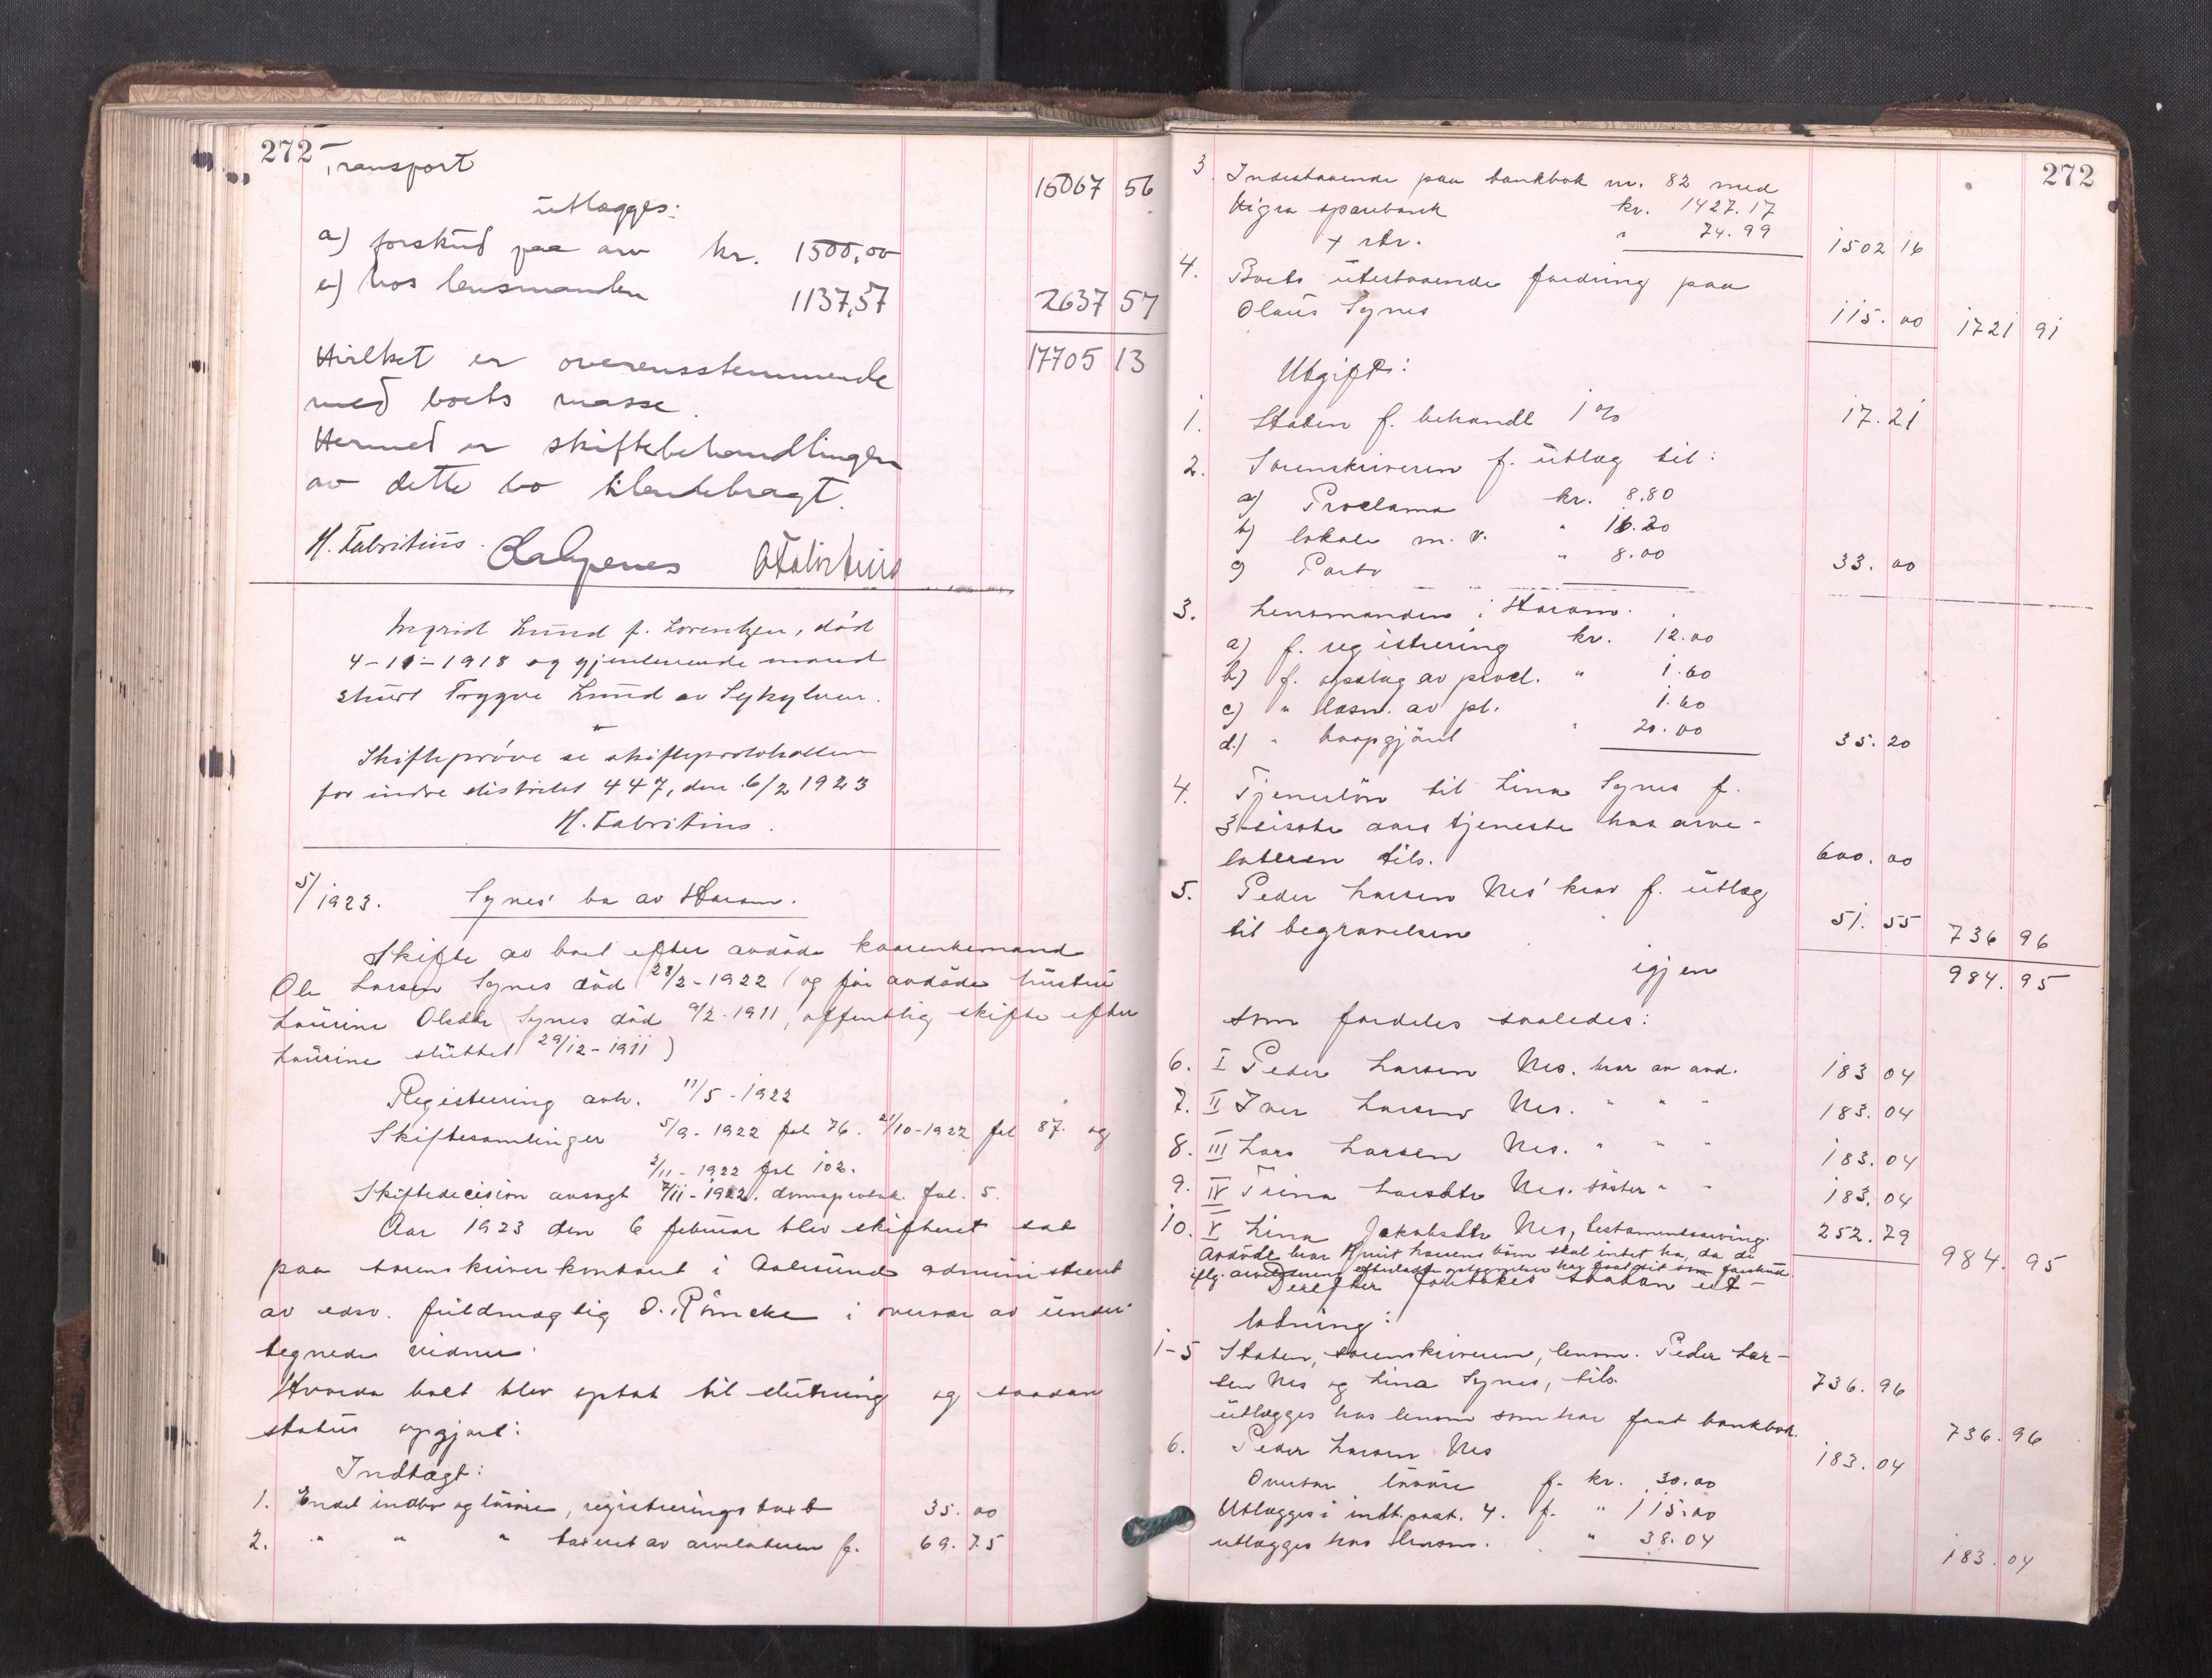 272 Transport 15067 56
utlægges:
a) forskud paa arv kr. 1500,00
e) hos lensmanden 1137,57 2637 57
17705 13
Hvilket er overensstemmende
med boets masse.
Hermed er skiftebehandlingen
av dette bo tilendebragt.
H. Fabritius.
Ingrid Lund f. Lorentzen, död
4-11-1918 og gjenlevende mand
Trygve Lund av Sykylven.
Skifteprøve se skifteprotokollen
for indre distrikt 447, den 6/2 1923
H. Fabritius.
5/1923. Synes' bo av Haram.
Skifte av boet efter avdöde kaarenkemand
Ole Larsen Synes död 28/2-1922 (og för avdöde hüstrü
Laürine Olsdtr Synes död 9/2-1911, offentlig skifte efter
Laürine slüttet 29/12-1911)
Registrering avh. 11/5-1922
Skiftesamlinger 5/9-1922 fol 76. 21/10-1922 fol 87. og
2/11-1922 fol 102.
Skiftedecision avsagt 7/11-1922. domsprotok. fol. 5.
Aar 1923 den 6 februar blev skifteret sat
paa sorenskriverkontoret i Aalesund administreret
av edsv. fuldmægtig O. Römcke i overvær av under-
tegnede vidner.
Hvorda boet blev optat til slütning og saadan
status opgjort:
Indtægt:
1. Endel indbo og lösöre, registrerings takst 35.00
2. " " " taxeret av arvelateren f. 69.75
272
3. Indestaaende paa bankbok nr. 82 med
Vigra sparebank kr. 1427.17
+ rtr. " 74.99 1502 16
4. Boets ütestaaende fordring paa
Olaüs Synes 115.00 1721 91
Utgift:
1. Staten f. behandl 1% 17.21
2. Sorenskriveren f. ütlæg til:
a) Proclama kr. 8.80
b) lokale m. v. " 16.20
c) Porto " 8.00 33.00
3. Lensmanden i Haram.
a) f. registrering kr. 12.00
b) f. opslag av procl. " 1.60
c) " læsn. av pl. 1.60
d.) " boopgjörel " 20.00 35.20
4. Tjenerlön til Lina Synes f.
3 sisste aars tjeneste hos arve-
lateren tils. 600.00
5. Peder Larsen Nes' krav f. ütlæg
til begravelsen 51.55 736 96
igjen 984.95
som fordeles saaledes:
6. I Peder Larsen Nes. bror av avd. 183 04
7. II Iver Larsen Nes. " " " 183.04
8. III Lars Larsen Nes. " " " 183.04
9. IV Trina Larsdtr Nes. söster " " 183.04
10. V Lina Jakobsdtr Nes, testamentsarving. 252.79
Avdöde bror Knüt Larsens börn skal intet ha, da de
iflg. arveladerens efterladte optegnelser har faat sit som forskud. 984.95
Derefter foretakes saadan ut-
lodning:
1-5 Staten, sorenskriveren, lensm. Peder Lar-
sen Nes og Lina Synes, tils. 736.96
ütlægges hos lensm som har faat bankbok. 736.96
6. Peder Larsen Nes 183.04
Overtar lösöre f. kr. 30.00
Utlægges i indt.post. 4. f. " 115.00
utlægges hos lensm. " 38.04 183.04